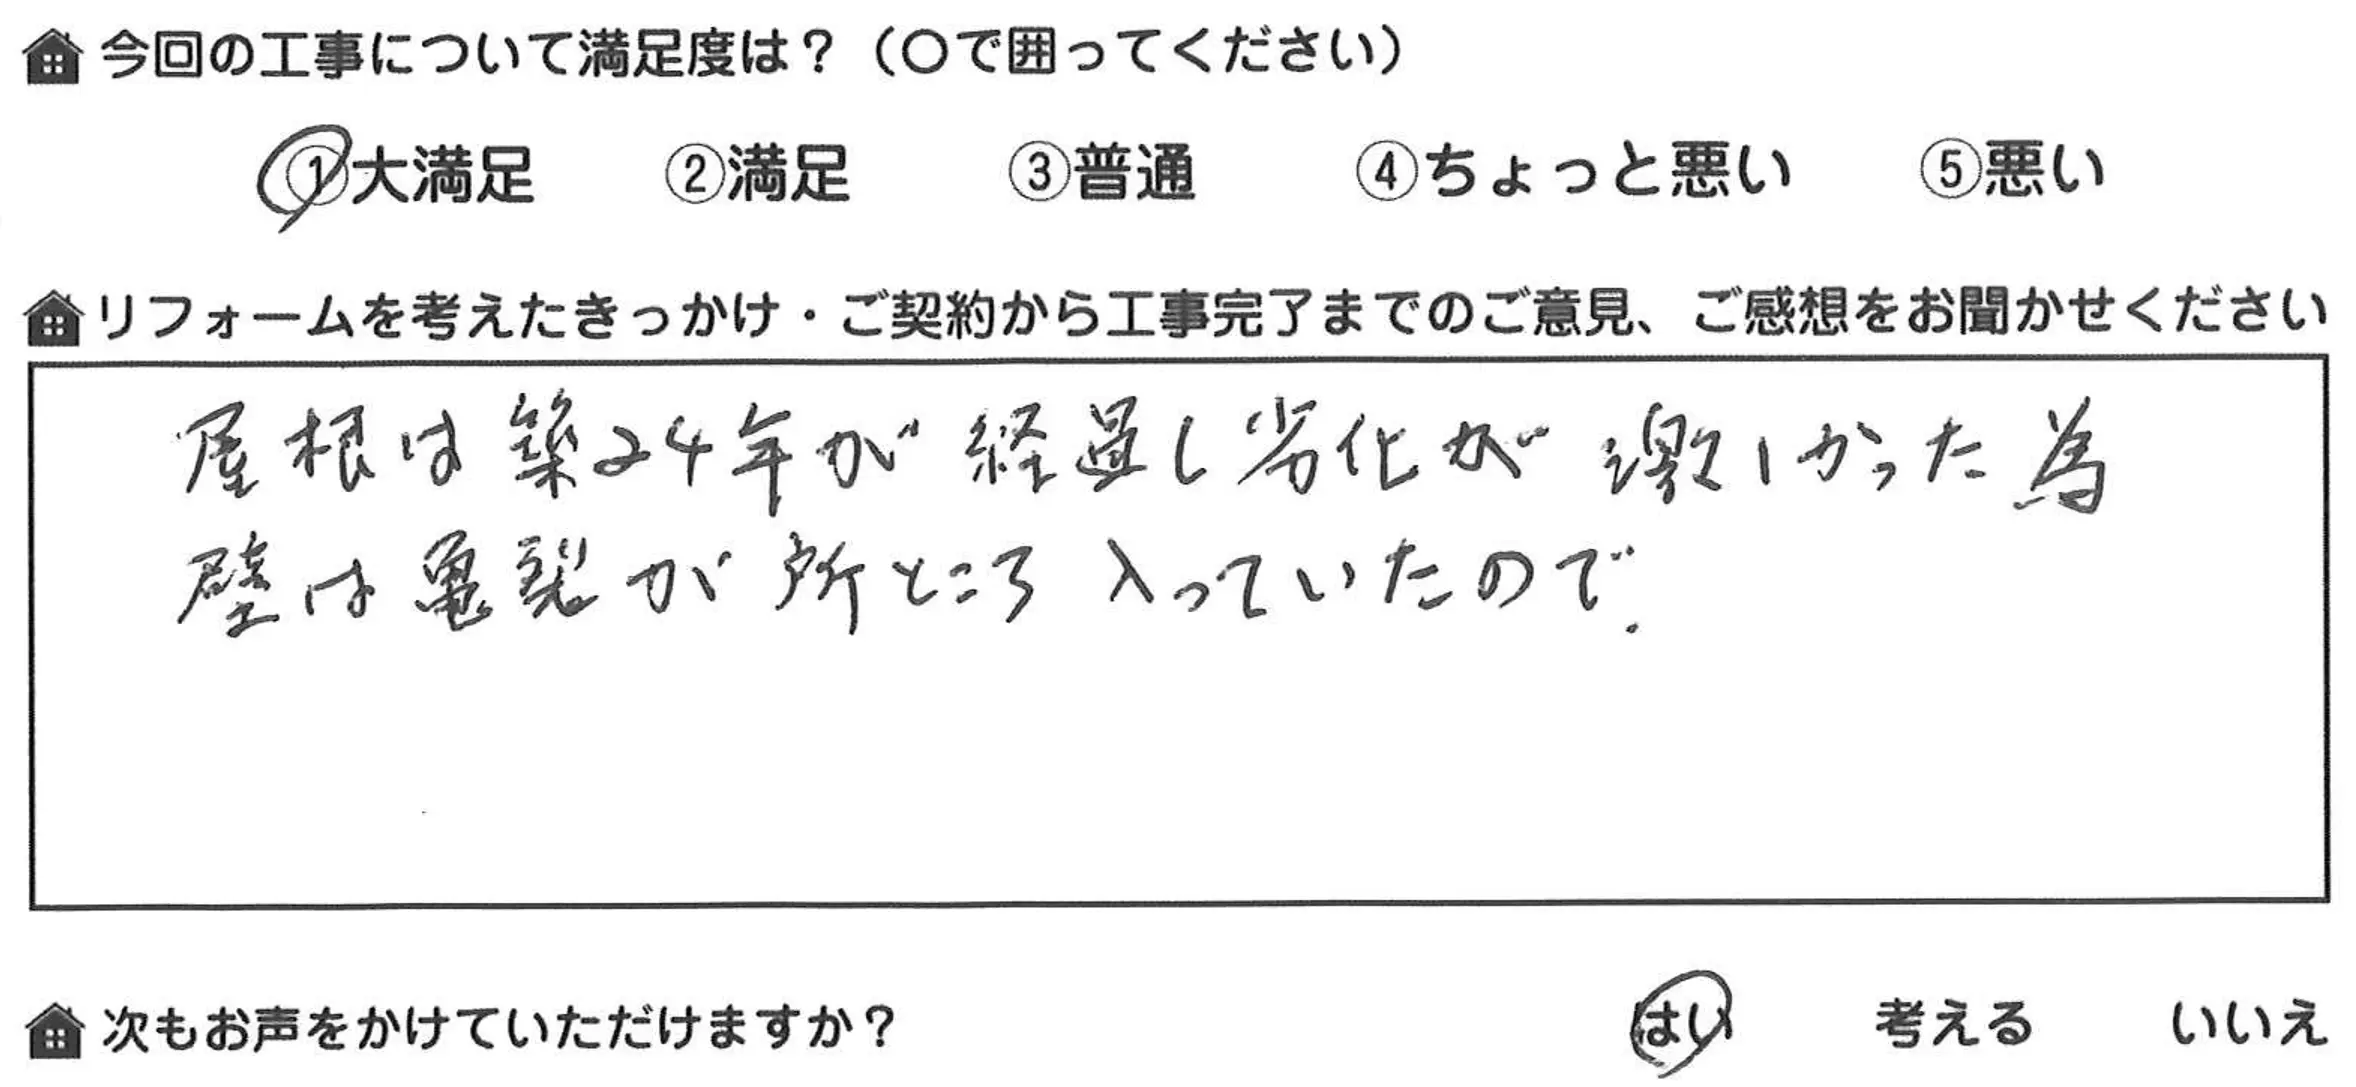 今回の工事について満足度は？（〇で囲ってください）
①大満足 ②満足 ③普通 ④ちょっと悪い ⑤悪い
リフォームを考えたきっかけ・ご契約から工事完了までのご意見、ご感想をお聞かせください
屋根は築24年が経過し劣化が激しかった為
壁は亀裂が所ところ入っていたので.
次もお声をかけていただけますか？ はい 考える いいえ